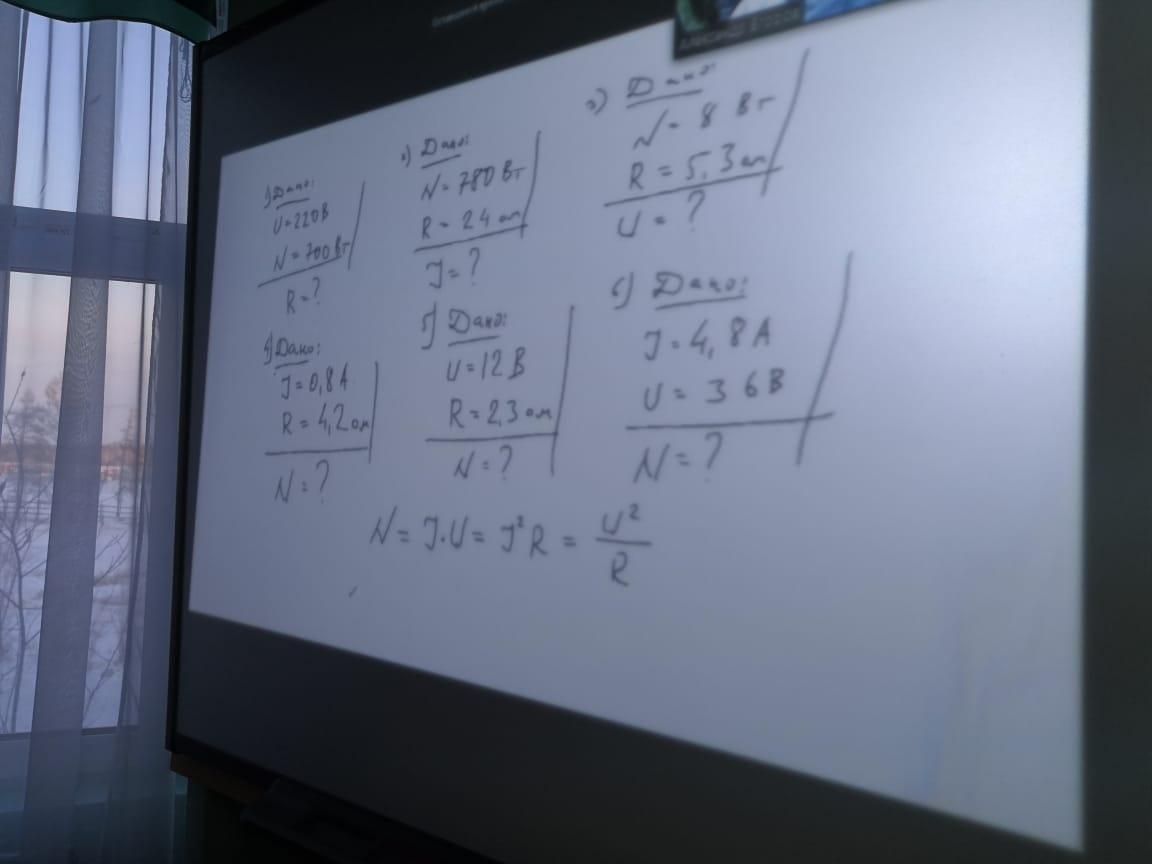 1) Дано:
U=220В
N=700Вт
R=?
2) Дано:
N=780Вт
R=24ом
J=?
3) Дано:
N=8 Вт
R=5,3ом
U=?
4) Дано:
J=0,8А
R=4,2ом
N=?
5) Дано:
U=12В
R=2,3ом
N=?
6) Дано:
J=4,8А
U=36В
N=?
N=J·U=J²R=U²/R